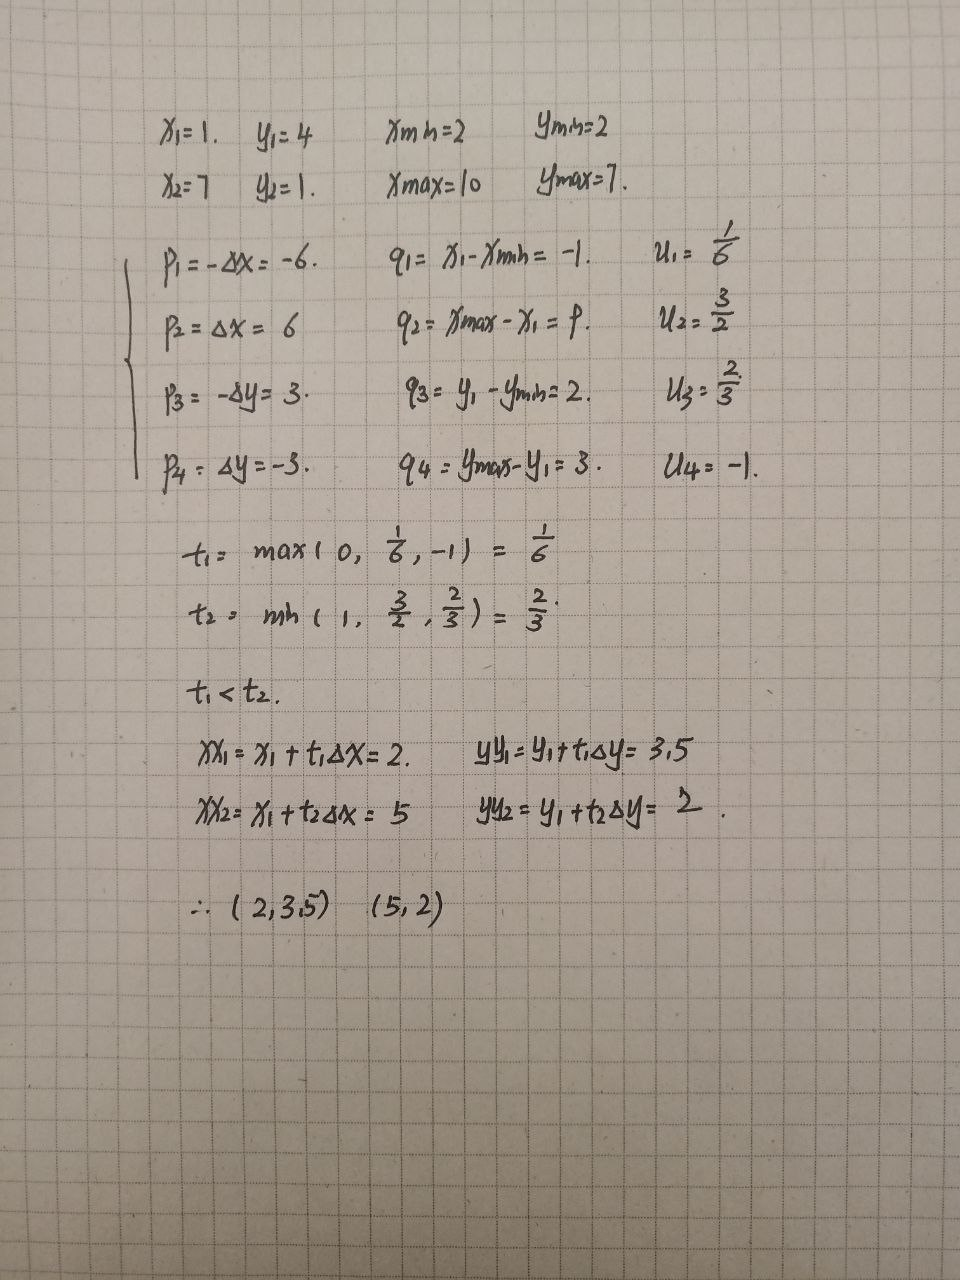 x₁=1. y₁=4 xmin=2 ymin=2
x₂=7 y₂=1. xmax=10 ymax=7.
p₁=-Δx=-6. q₁=x₁-xmin=-1. u₁=1/6
p₂=Δx=6 q₂=xmax-x₁=9. u₂=3/2
p₃=-Δy=3. q₃=y₁-ymin=2. u₃=2/3
p₄=Δy=-3. q₄=ymax-y₁=3. u₄=-1.
t₁=max(0, 1/6, -1)=1/6
t₂=min(1, 3/2, 2/3)=2/3.
t₁<t₂.
xx₁=x₁+t₁Δx=2. yy₁=y₁+t₁Δy=3.5
xx₂=x₁+t₂Δx=5 yy₂=y₁+t₂Δy=2.
∴ (2,3.5) (5,2)